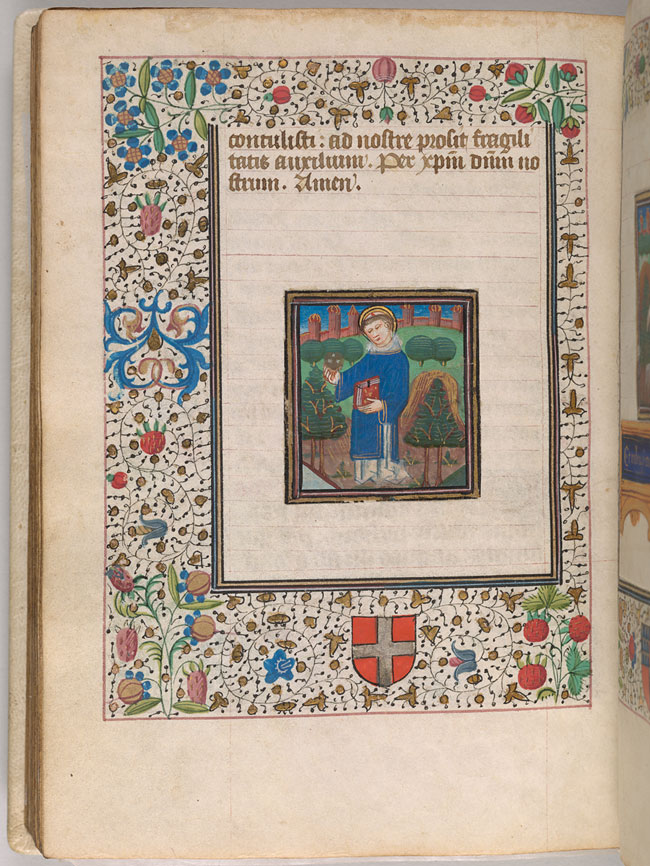 contulisti: ad nostre prosit fragili
tatis auxilium. Per xp̄m dn̄m no
strum. Amen.